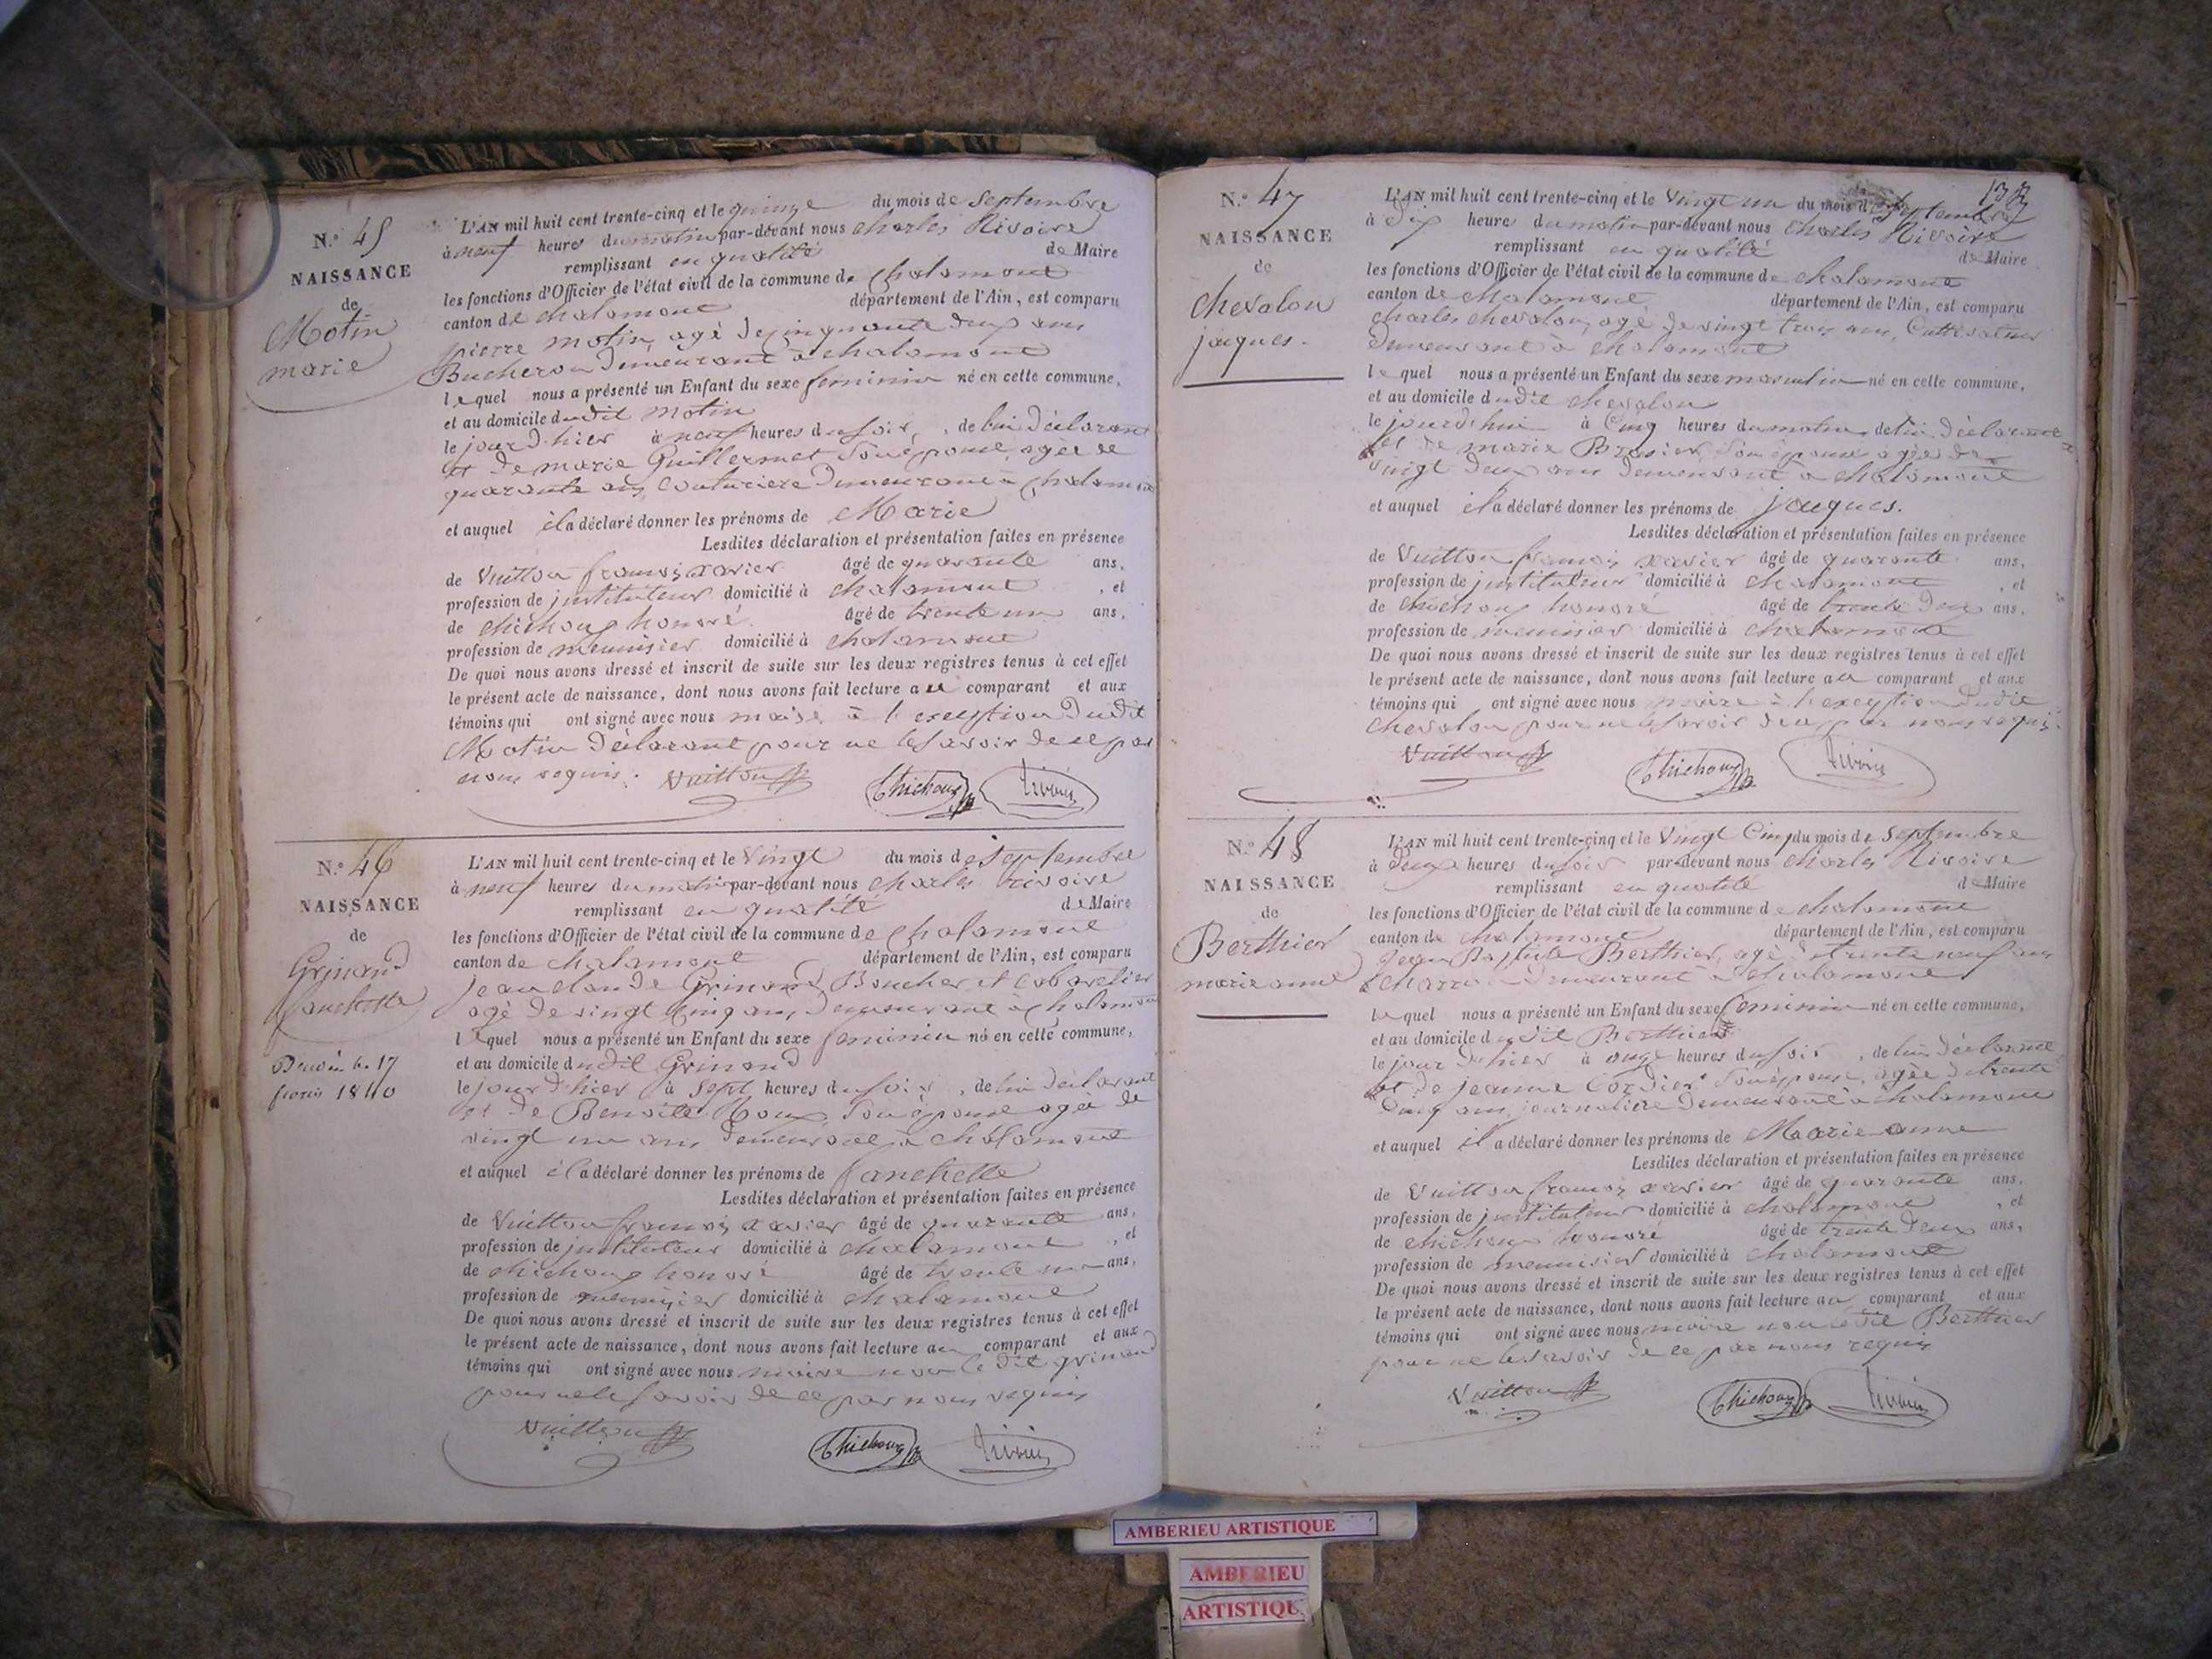 N.° 45
NAISSANCE
de
Motin
marie
L'AN mil huit cent trente-cinq et le quinze du mois de Septembre
à neuf heures du matin par-devant nous Charles Rivoire
remplissant en qualité de Maire
les fonctions d'Officier de l'état civil de la commune de Chalamont
canton de chalamont département de l'Ain, est comparu
pierre motin, agé de cinquante deux ans
Bucheron demeurant à chalamont
lequel nous a présenté un Enfant du sexe feminin né en cette commune,
et au domicile dudit motin
le jour d'hier à neuf heures du soir, de lui déclarant
et de marie Guillermet son épouse, agée de
quarante ans, couturiere demeurant à chalamont
et auquel il a déclaré donner les prénoms de Marie
Lesdites déclaration et présentation faites en présence
de Vuitton françois xavier âgé de quarante ans,
profession de jnstituteur domicilié à chalamont, et
de chichoux honoré âgé de trente un ans,
profession de menuisier domicilié à chalamont
De quoi nous avons dressé et inscrit de suite sur les deux registres tenus à cet effet
le présent acte de naissance, dont nous avons fait lecture au comparant et aux
témoins qui ont signé avec nous maire à l'exception dudit
Motin déclarant pour ne le savoir de ce par
nous requis. Vuitton Chichoux Rivoire
N.° 46
NAISSANCE
de
Grinand
fanchette
Décédée le 17
1840
L'AN mil huit cent trente-cinq et le Vingt du mois de Septembre
à neuf heures du matin par-devant nous Charles Rivoire
remplissant en qualité de Maire
les fonctions d'Officier de l'état civil de la commune de Chalamont
canton de chalamont département de l'Ain, est comparu
jean claude Grinand, Boucher et Cabaretier
agé de vingt cinq ans, demeurant à chalamont
lequel nous a présenté un Enfant du sexe feminin né en cette commune,
et au domicile dudit Grinand
le jour d'hier à Sept heures du soir, de lui déclarant
et de Benoite Roux, son épouse agée de
vingt un ans demeurant à chalamont
et auquel il a déclaré donner les prénoms de fanchette
Lesdites déclaration et présentation faites en présence
de Vuitton françois xavier âgé de quarante ans,
profession de jnstituteur domicilié à chalamont, et
de chichoux honoré âgé de trente un ans,
profession de menuisier domicilié à chalamont
De quoi nous avons dressé et inscrit de suite sur les deux registres tenus à cet effet
le présent acte de naissance, dont nous avons fait lecture au comparant et aux
témoins qui ont signé avec nous maire non le dit grinand
pour ne le savoir de ce par nous requis
Vuitton Chichoux Rivoire
N.° 47
NAISSANCE
de
chevalon
jacques.
L'AN mil huit cent trente-cinq et le Vingt un du mois de Septembre
à Dix heures du matin par-devant nous Charles Rivoire
remplissant en qualité de Maire
les fonctions d'Officier de l'état civil de la commune de chalamont
canton de chalamont département de l'Ain, est comparu
charles chevalon, agé de vingt trois ans, Cultivateur
demeurant à chalamont
lequel nous a présenté un Enfant du sexe masculin né en cette commune,
et au domicile dudit chevalon
le jourd'hui à Cinq heures du matin, de lui déclarant
et de marie Brosier, son épouse agée de
vingt deux ans demeurant à chalamont
et auquel il a déclaré donner les prénoms de jacques.
Lesdites déclaration et présentation faites en présence
de Vuitton françois xavier âgé de quarante ans,
profession de jnstituteur domicilié à chalamont, et
de chichoux honoré âgé de trente deux ans,
profession de menuisier domicilié à chalamont
De quoi nous avons dressé et inscrit de suite sur les deux registres tenus à cet effet
le présent acte de naissance, dont nous avons fait lecture au comparant et aux
témoins qui ont signé avec nous maire à l'exception dudit
chevalon pour ne le savoir de ce par nous requis.
Vuitton Chichoux Rivoire
N.° 48
NAISSANCE
de
Berthier
marie anne
L'AN mil huit cent trente-cinq et le Vingt Cinq du mois de Septembre
à Deux heures du soir par-devant nous Charles Rivoire
remplissant en qualité de Maire
les fonctions d'Officier de l'état civil de la commune de chalamont
canton de chalamont département de l'Ain, est comparu
jean Baptiste Berthier, agé de trente neuf ans
charron demeurant à chalamont
lequel nous a présenté un Enfant du sexe feminin né en cette commune,
et au domicile dudit Berthier
le jour d'hier à onze heures du soir, de lui déclarant
et de jeanne Cordier son épouse, agée de trente
cinq ans, journaliere demeurant à chalamont
et auquel il a déclaré donner les prénoms de Marie anne
Lesdites déclaration et présentation faites en présence
de Vuitton françois xavier âgé de quarante ans,
profession de jnstituteur domicilié à chalamont, et
de chichoux honoré âgé de trente deux ans,
profession de menuisier domicilié à chalamont
De quoi nous avons dressé et inscrit de suite sur les deux registres tenus à cet effet
le présent acte de naissance, dont nous avons fait lecture au comparant et aux
témoins qui ont signé avec nous maire non le dit Berthier
pour ne le savoir de ce par nous requis
Vuitton Chichoux Rivoire
AMBERIEU ARTISTIQUE
AMBERIEU
ARTISTIQU